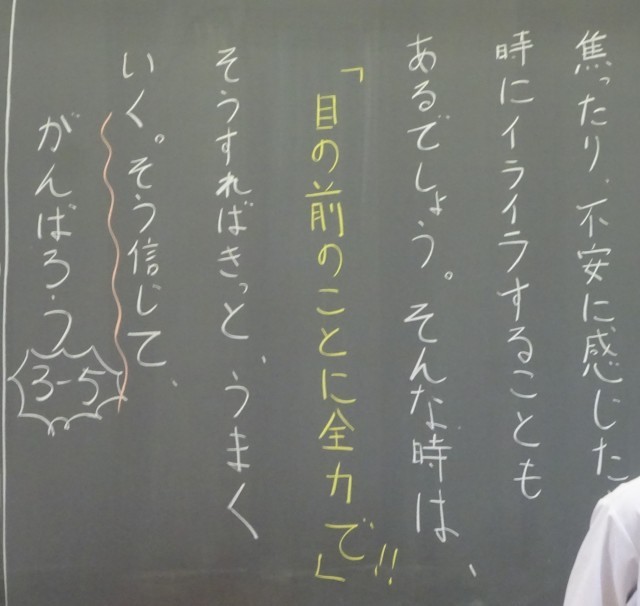 焦ったり、不安に感じた
時にイライラすることも
あるでしょう。そんな時は、
「目の前のことに全力で」!!
そうすればきっと、うまく
いく。そう信じて、
がんばろう
3-5